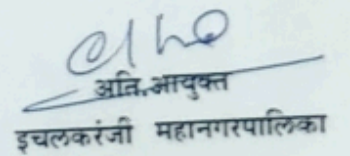 अति.आयुक्त
इचलकरंजी महानगरपालिका